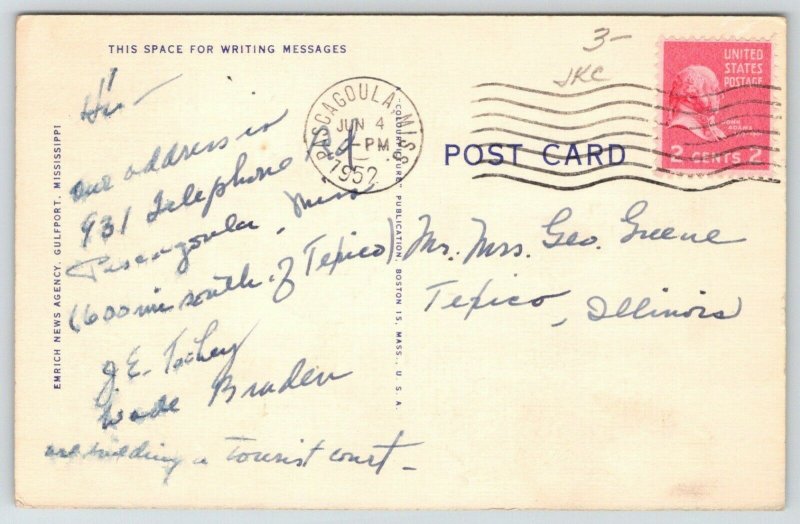 THIS SPACE FOR WRITING MESSAGES
3-
JKC
Hi -
our address is
931 Telephone Rd.
Pascagoula, Miss
(600 mi south of Texico)
J.E.
Wade Braden
are building a tourist court -
EMRICH NEWS AGENCY, GULFPORT, MISSISSIPPI
PUBLICATION, BOSTON 15, MASS., U.S.A.
PASCAGOULA, MISS.
JUN 4
PM
1952
POST CARD
UNITED
STATES
POSTAGE
JOHN
ADAMS
2 CENTS 2
Mr. Mrs. Geo. Greene
Texico, Illinois